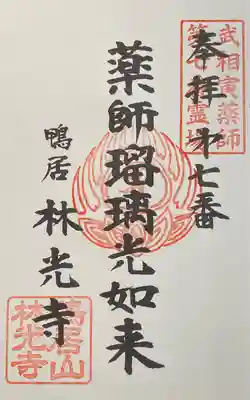 武相寅薬師
第七霊場
奉拝 第七番
薬師瑠璃光如来
鴨居 林光寺
鴨居山
林光寺